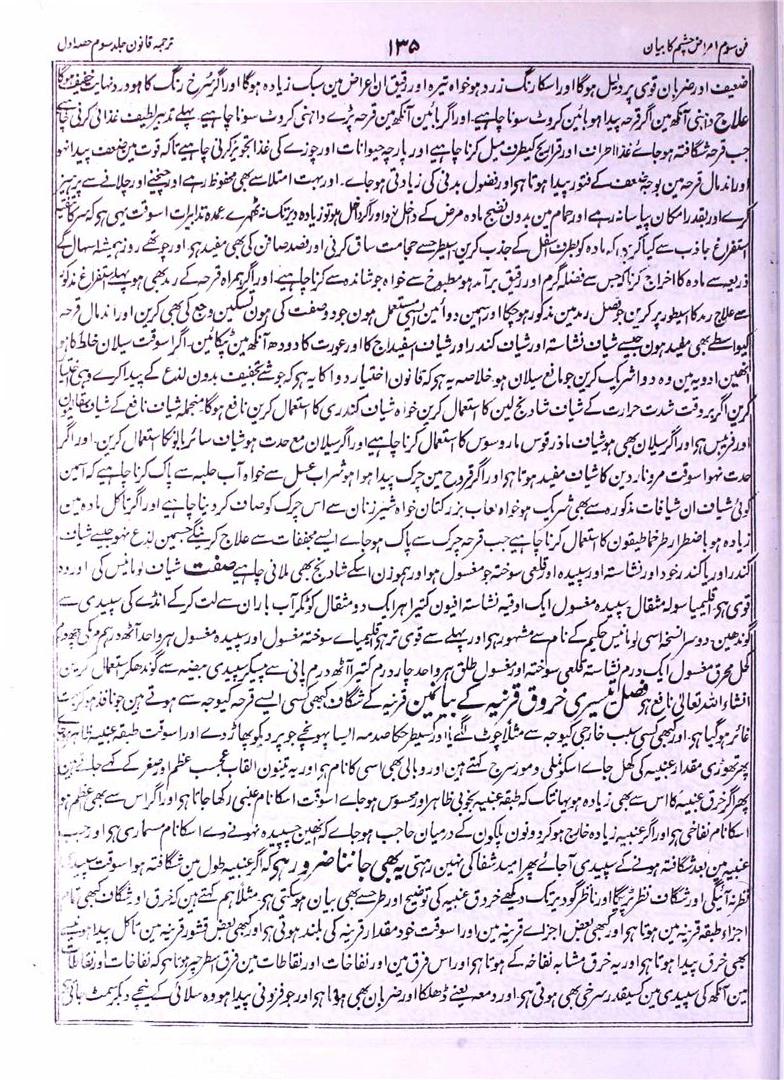 فن سوم امراض چشم کا بیان
۱۳۵
ترجمہ قانون جلد سوم حصہ اول
ضعیف اور ضربان قوی پر دلیل ہوگا اور اسکا رنگ زرد ہو خواہ تیرہ اور رقیق ان اعراض مین سبک زیادہ ہوگا اور اگر سرخ رنگ کا ہو درد نہایت خفیف ہوگا
علاج داہنی آنکھ مین اگر قرحہ پیدا ہو بائین کروٹ سونا چاہیے۔ اور اگر بائین آنکھ مین قرحہ پڑے داہنی کروٹ سونا چاہیے۔ پہلے تدبیر لطیف غذائی کرنی چاہیے
جب قرحہ شگافتہ ہو جاے غذا اطراف اور فراریج کیطرف میل کرنا چاہیے اور پارچہ حیوانات اور چوزے کی غذا تجویز کرنی چاہیے تاکہ قوت مین ضعف پیدا نہو
اور اندمال قرحہ مین بوجہ ضعف کے فتور پیدا ہوتا ہے اور فضول بدنی کی زیادتی ہو جاے۔ اور بہت امتلا سے بھی محفوظ رہے اور چیخنے اور چلانے سے پرہیز
کرے اور بقدر امکان پیاسا نہ رہے اور حمام مین بدون نضج مادہ مرض کے داخل نہو اور اگر داخل ہو تو زیادہ دیر تک نہ ٹھہرے عمدہ تدابیر اسوقت یہی ہے کہ سر کا تنقیہ
استفراغ جاذب سے کیا کرے کہ مادہ کو طرف اسفل کے جذب کرین اسیطرح سے حجامت ساق کرنی اور فصد صافن کی بھی مفید ہے اور چوتھے روز ہمیشہ اسہال کے
ذریعہ سے مادہ کا اخراج کرنا کہ جس سے فضلہ گرم اور رقیق برآمد ہو مطبوخ سے خواہ جوشاندہ سے کرنا چاہیے اور اگر ہمراہ قرحہ کے رمد بھی ہو پہلے استفراغ مذکور
سے علاج رمد کا اسطور پر کرین جو فصل رمد مین مذکور ہو چکا اور اسمین دوائین ایسی مستعمل ہون جو دو صفت کی ہون تسکین وجع کی بھی کرین اور اندمال قرحہ
کیواسطے بھی مفید ہون جیسے شیاف نشاستہ اور شیاف کندر اور شیاف اسفیداج کا اور عورت کا دودھ آنکھ مین ٹپکائین۔ اگر اسوقت سیلان خلط کا ہو
انھین ادویہ مین وہ دوا شریک کرین جو مانع سیلان ہو خلاصہ یہ ہے کہ قانون اختیار دوا کا یہ ہے کہ جو شے تخفیف بدون لذع کے پیدا کرے وہی اختیار
کرین اگر بروقت شدت حرارت کے شیاف شادنج لین کا استعمال کرین خواہ شیاف کندری کا استعمال کرین نافع ہوگا منجملہ شیاف نافع کے شیاف
اور فرمیس ہے اور اگر سیلان بھی ہو شیاف مادر قوس مارو سوس کا استعمال کرنا چاہیے اور اگر سیلان مع حدت ہو شیاف سائر بالو کا استعمال کرین۔ اور اگر
حدت نہو اسوقت مرو ناردین کا شیاف مفید ہوتا ہے اور اگر قروح مین چرک پیدا ہوا ہو شراب عسل سے خواہ آب حلبہ سے پاک کرنا چاہیے کہ اسمین
کوئی شیاف ان شیافات مذکورہ سے بھی شریک ہو خواہ لعاب بزر کتان خواہ شیر زنان سے اس چرک کو صاف کر دینا چاہیے اور اگر تاکل مادہ مین
زیادہ ہو باضطرار طرخماطیقون کا استعمال کرنا چاہیے جب قرحہ چرک سے پاک ہو جاوے ایسے مجففات سے علاج کرینگے جسمین لذع نہو جیسے شیاف
کندر اور یا کندر خود اور نشاستہ اور سپیدہ اور قلعی سوختہ جو مغسول ہو اور ہموزن اسکے شادنج بھی ملانی چاہیے صفت شیاف لوبانیس کی اور وہ
قوی ہے اقلیمیا سولہ مثقال سپیدہ مغسول ایک اوقیہ نشاستہ افیون کتیرا ہر ایک دو مثقال کوٹکر آب باران سے لت کر کے انڈے کی سپیدی سے
گوندھین۔ دوسرا نسخہ اسی لوبانیس حکیم کے نام سے مشہور ہے اور پہلے سے قوی تر ہے اقلیمیاے سوختہ مغسول اور سپیدہ مغسول ہر واحد آٹھ درہم
کحل محرق مغسول ایک درم نشاستہ قلعی سوختہ اور مغسول طلق ہر واحد چار درم کتیرا آٹھ درم پانی سے پیسکر سپیدی بیضہ سے گوندھکر استعمال کرین
انشاء اللہ تعالی نافع ہے فصل تیسری خروق قرنیہ کے بیانمین قرنیہ کے شگاف کبھی کسی ایسے قرحہ کیوجہ سے ہوتے ہین جو نافذ ہو کر بہت
غائر ہو گیا ہے۔ اور کبھی کسی سبب خارجی کیوجہ سے مثلاً چوٹ لگے یا اور کسیطرحکا صدمہ ایسا پہونچے جو پردیکو پھاڑ دے اور اسوقت طبقہ عنبیہ ظاہر ہو جاے
پھر تھوڑی مقدار عنبیہ کی کھل جاے اسکو نملی و مورسرج کہتے ہین اور ذبابی بھی اسی کا نام ہے اور یہ تینون القاب بحسب عظم اور صغر کے کہے جاتے ہین
پھر اگر خرق عنبیہ کا اس سے بھی زیادہ ہو یہانتک کہ طبقہ عنبیہ بخوبی ظاہر اور محسوس ہو جاے اسوقت اسکا نام عنبی رکھا جاتا ہے اور اگر اس سے بھی عظیم ہو
اسکا نام نفاخی ہے اور اگر عنبیہ زیادہ خارج ہو کر دونون پلکون کے درمیان حاجب ہو جاے کہ انھین چسپیدہ نہونے دے اسکا نام مسماری ہے اور جب
عنبیہ مین بعد شگافتہ ہونے کے سپیدی آ جائے پھر امید شفا کی نہین رہتی یہ بھی جاننا ضرور ہے کہ اگر عنبیہ طول مین شگافتہ ہو اسوقت سپیدی
نظر نہ آئیگی اور شگاف نظر پڑیگا اور ناظر گو دیر تک دیکھے خروق عنبیہ کی توضیح اور طرح سے بھی بیان ہو سکتی ہے۔ مثلاً ہم کہتے ہین کہ خرق اور شگاف کبھی تمام
اجزاء طبقہ قرنیہ مین ہوتا ہے اور کبھی بعض اجزاے قرنیہ مین اور اسوقت خود مقدار قرنیہ کی بلند ہوتی ہے اور کبھی بعض قشور قرنیہ مین تاکل پیدا ہو جیسے
بھی خرق پیدا ہوتا ہے اور یہ خرق مشابہ نفاخہ کے ہوتا ہے اور اس فرق مین اور نفاخات اور نفاطات مین فرق اسطرح پر ہوتا ہے کہ نفاخات اور نفاطات
مین آنکھ کی سپیدی مین کسیقدر سرخی بھی ہوتی ہے اور دمعہ یعنے ڈھلکا اور ضربان بھی ہوتا ہے اور جو فزونی پیدا ہو وہ سلائی کے نیچے دبکر سمٹ جاتی